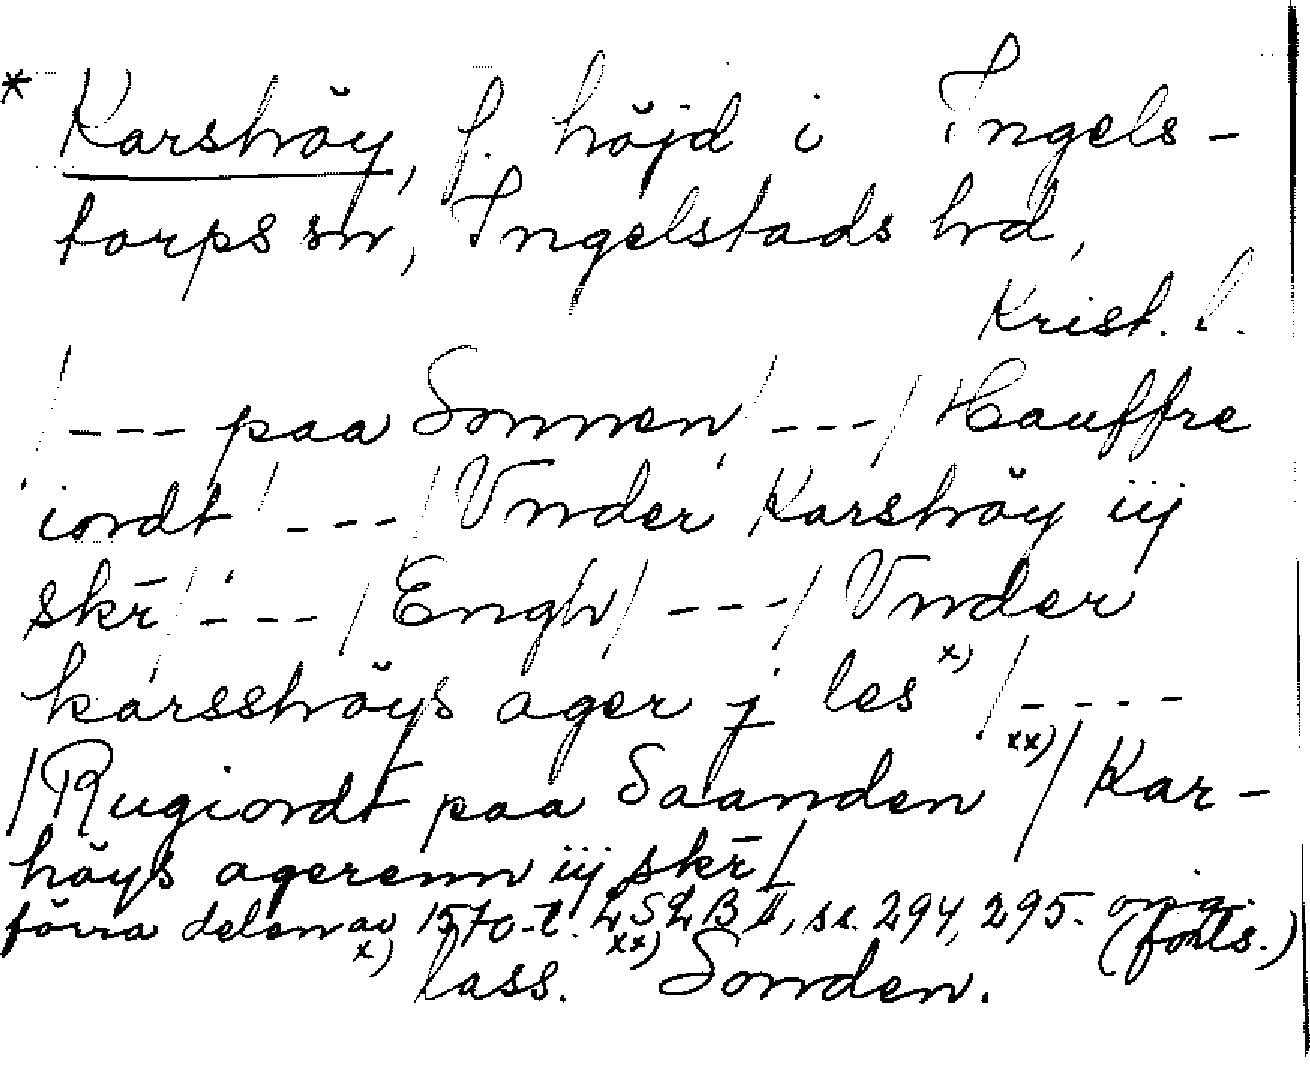 * Karshöy, f. höjd i Ingels-
torps sn, Ingelstads hd,
Krist. l.
/--- paa Sonnen/ ---/ Hauffre
iordt / ---/ Vnder Karshöy iij
skr̄ / --- / Engh / ---/ Vnder
karsshöys ager j les x) / ----
/ Rugiordt paa Saanden xx) / Kar-
höys agerenn iij skr̄ /
förra delen av 1570-t. LSLB II, ss. 294, 295. orig.
(forts.)
x) lass. xx) Sonden.